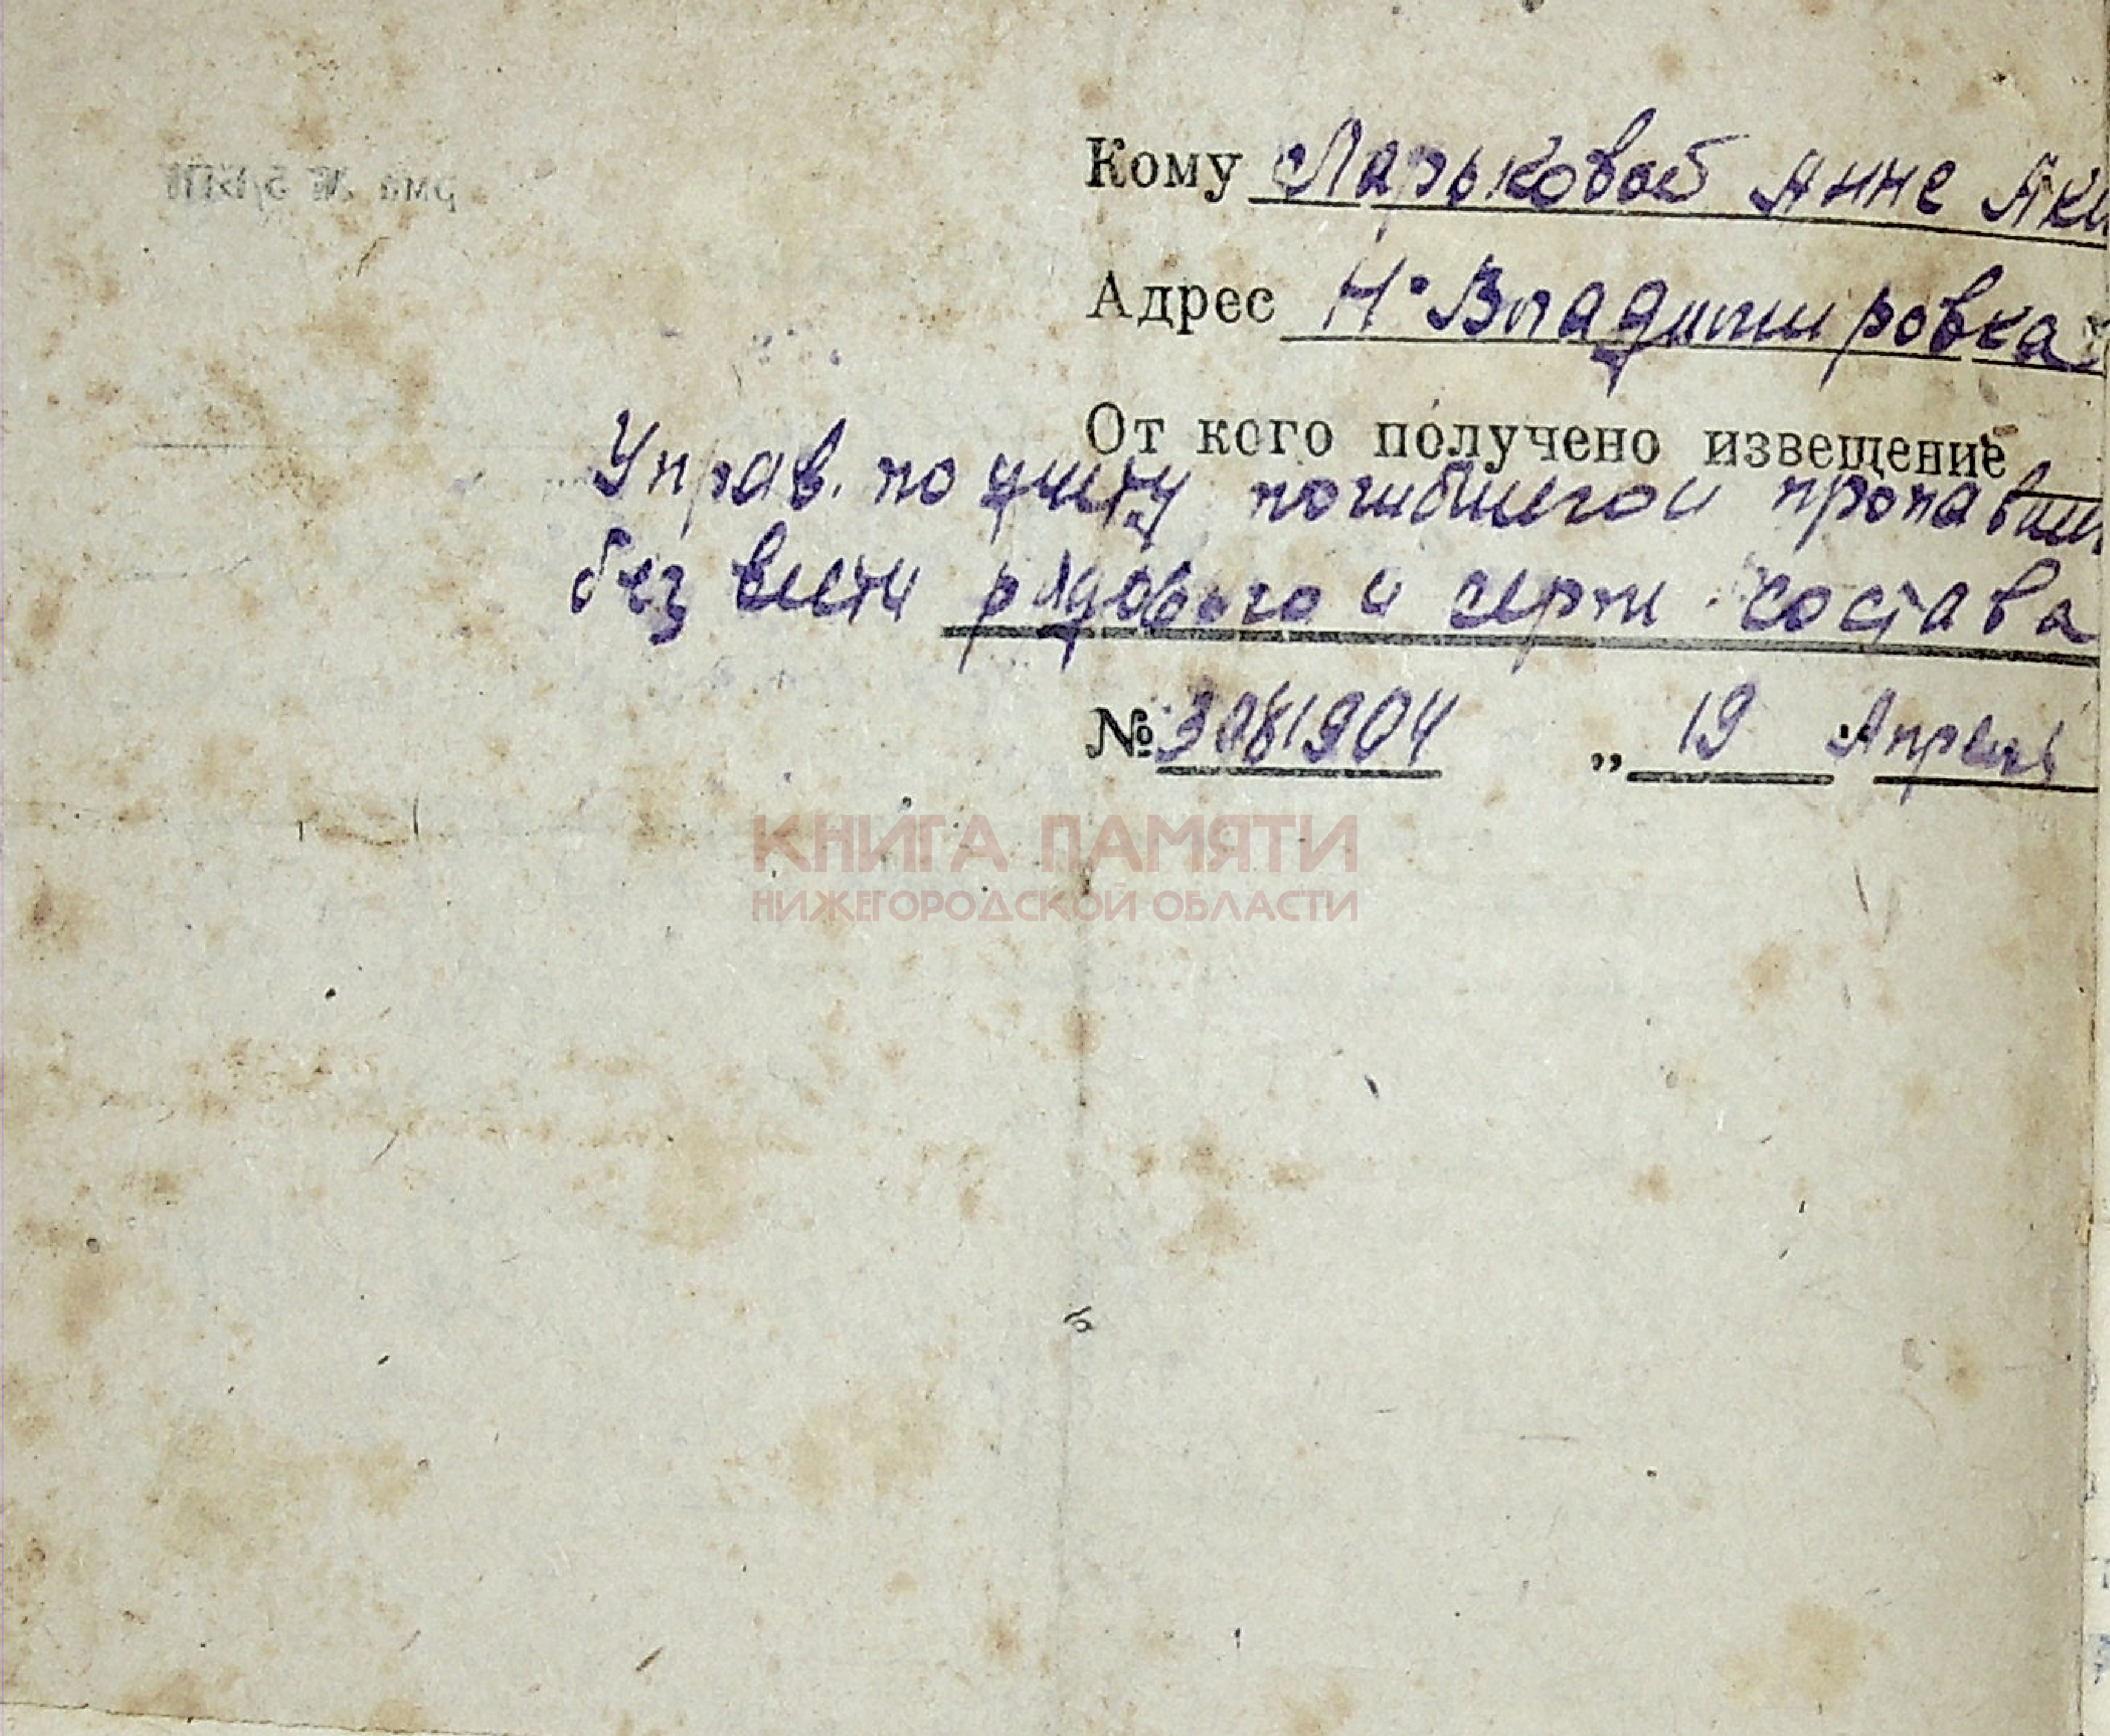 Кому Ларьковой Анне Аки
Адрес Н. Владимировка
От кого получено извещение
Управ. по учету погибшего и пропавш
без вести рядового и серж. состава
№ 3081904 „ 19 Апрель
КНИГА ПАМЯТИ
НИЖЕГОРОДСКОЙ ОБЛАСТИ